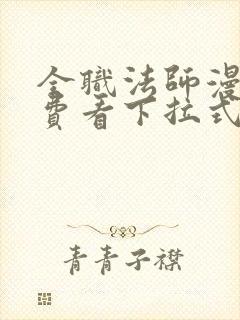 全職法師漫
費看下拉式
青青子襟